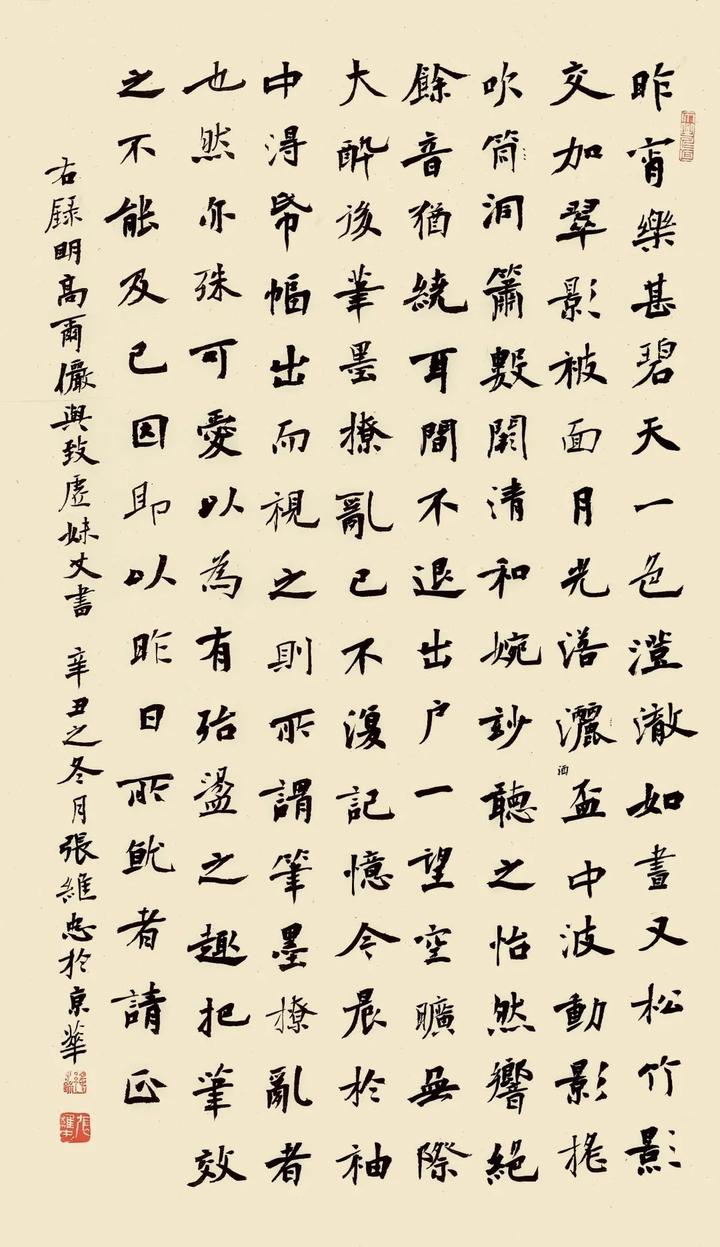 昨宵樂甚碧天一色澄澈如晝又松竹影
交加翠影被面月光落灑盃中波動影搖
酒
吹筒洞簫數闋清和婉妙聽之怡然響絕
餘音猶繞耳間不退出户一望空曠無際
大醉後筆墨撩亂已不復記憶今晨於袖
中得帋幅出而視之則所謂筆墨撩亂者
也然亦殊可愛以為有殆盪之趣把筆效
之不能及已因即以昨日所魷者請正
右録明高爾儼與致虛妹丈書 辛丑之冬月張維忠於京華